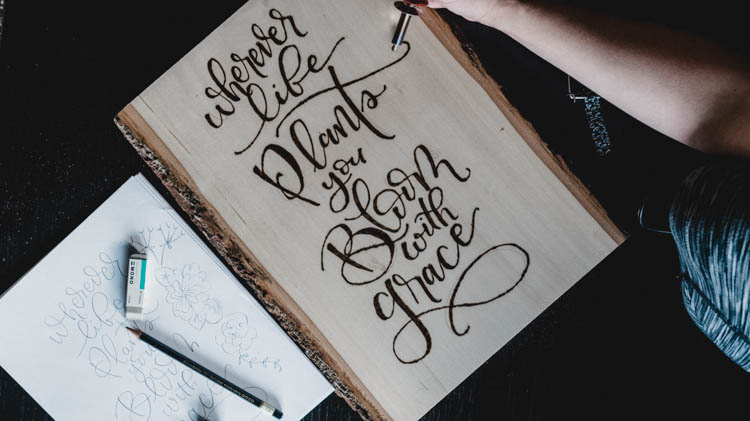 wherever
life
Plants
you
Bloom
with
grace
wherever
life
Plants
you
Bloom
with
grace
MONO